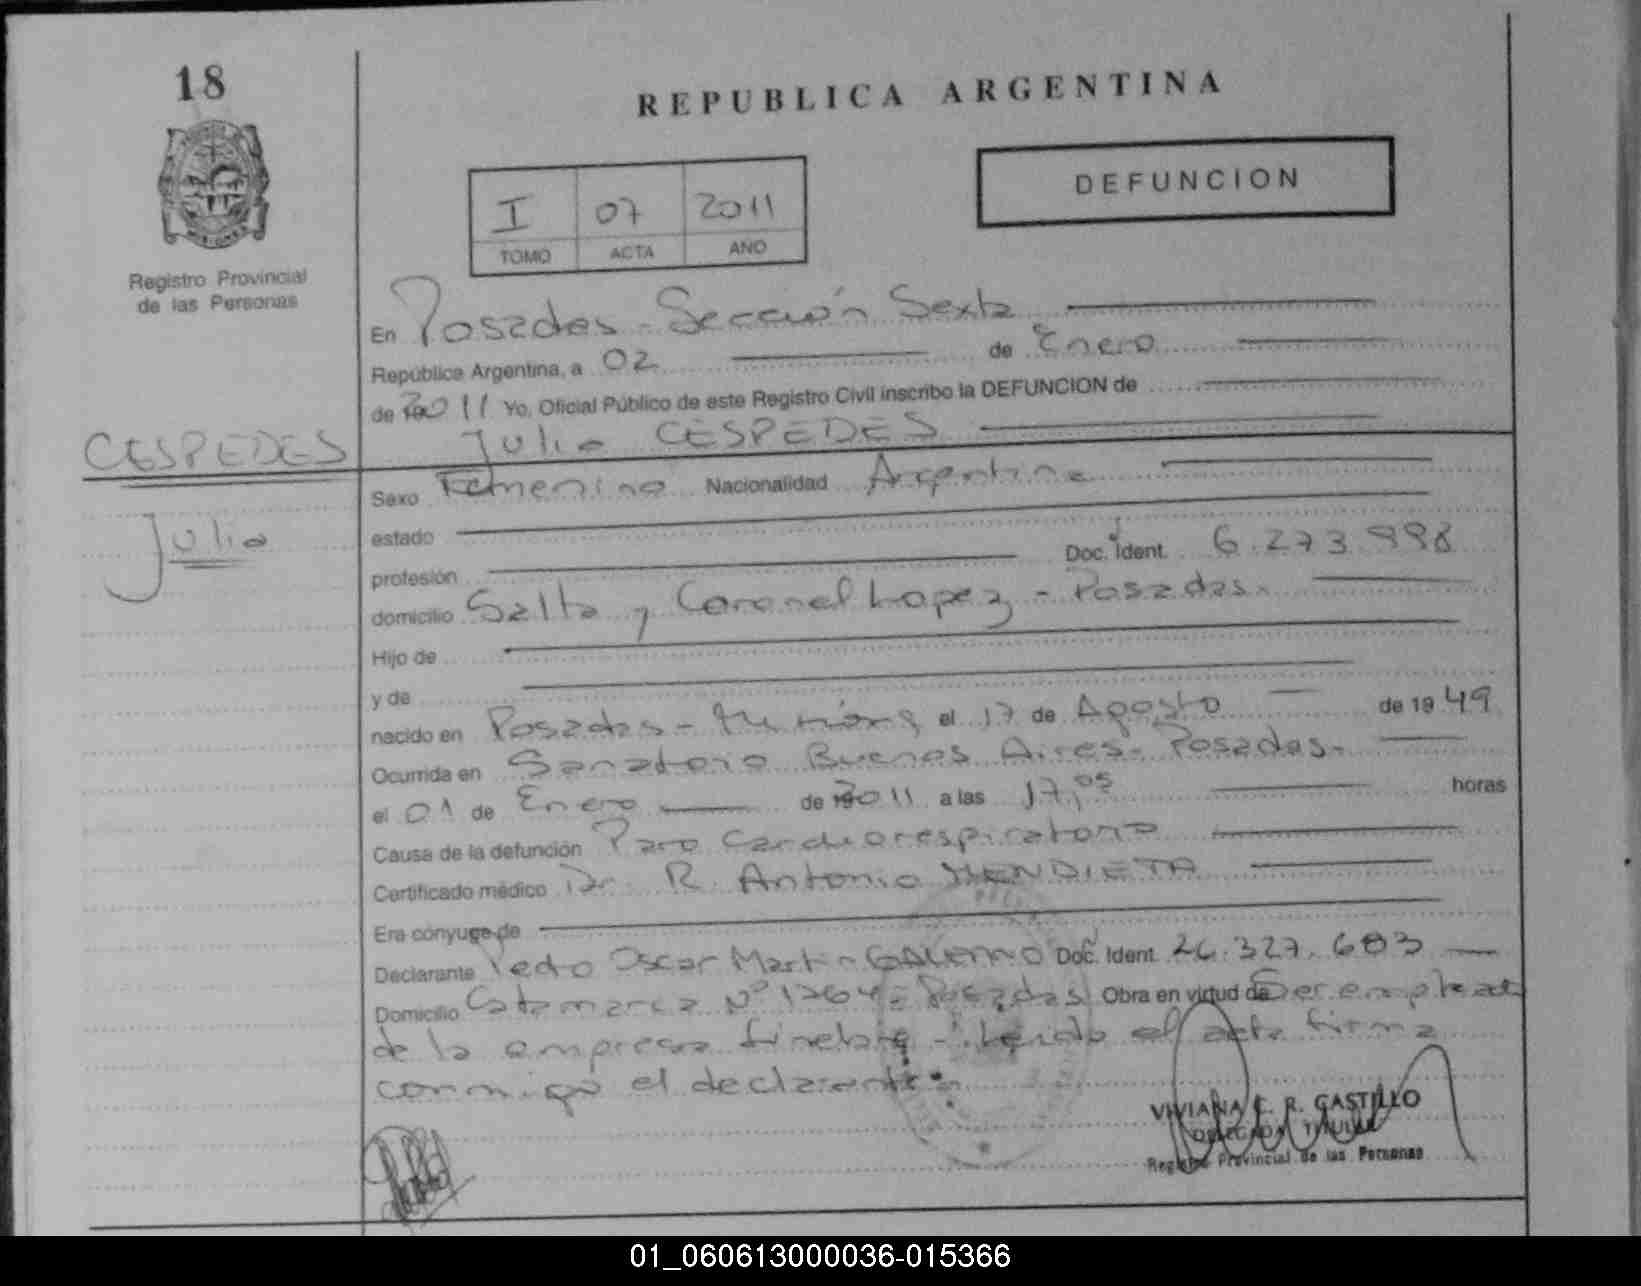 18
REPUBLICA ARGENTINA
DEFUNCION
I 07 2011
TOMO ACTA AÑO
Registro Provincial
de las Personas
En Posadas - Sección Sexta
República Argentina, a 02 de Enero
de 2011 Yo, Oficial Público de este Registro Civil inscribo la DEFUNCION de
CESPEDES
Julia CESPEDES
Julia
Sexo Femenino Nacionalidad Argentina
estado
profesión Doc. Ident. 6.273.998
domicilio Salta y Coronel Lopez - Posadas.
Hijo de
y de
nacido en Posadas - Misiones el 17 de Agosto de 1949
Ocurrida en Sanatorio Buenos Aires - Posadas -
el 01 de Enero de 2011 a las 17,05 horas
Causa de la defunción Paro Cardiorespiratorio
Certificado médico Dr. R. Antonio MENDIETA
Era cónyuge de
Declarante Pedro Oscar Martin Doc. Ident. 26.327.683
Domicilio Catamarca Nº 1264 - Posadas Obra en virtud de Ser empleado
de la empresa - Leído el acta firma
conmigo el declarante.
VIVIANA E. R. CASTILLO
DELEGADA TITULAR
Registro Provincial de las Personas
01_060613000036-015366